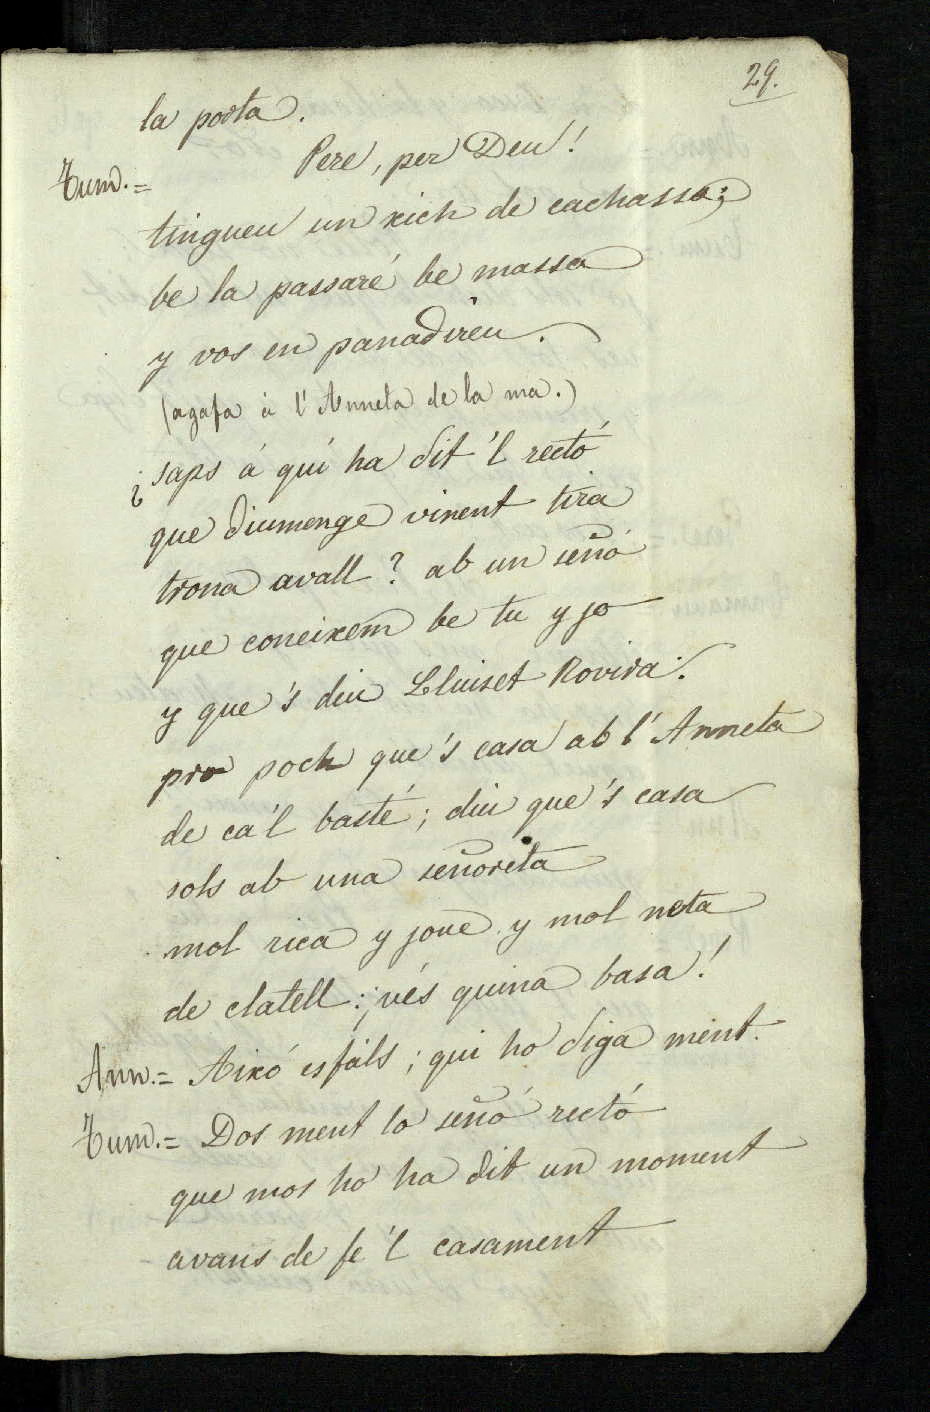 29.
la porta.
Tum.= Pere, per Deu!
tingueu un xich de cachassa;
be la passaré be massa
y vos en panadireu.
(agafa á l'Anneta de la ma.)
¿saps á quí ha dit 'l rectó
que diumenge vinent tira
trona avall? ab un señó
que coneixem be tu y jo
y que 's diu Lluiset Rovira.
pro poch que's casa ab l'Anneta
de ca'l basté; diu que's casa
sols ab una señoreta
mol rica y jove y mol neta
de clatell: ¡vés quina basa!
Ann.= Aixó es fals; qui ho diga ment.
Tum.= Dos ment lo señó rectó
que mos ho ha dit un moment
avans de fe 'l casament